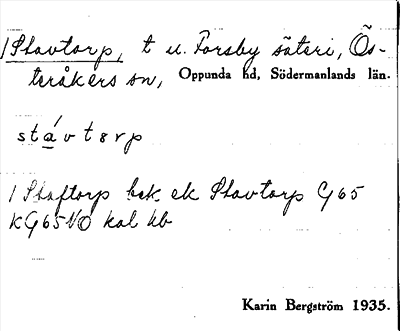 /Stavtorp, t u. Forsby säteri, Ös-
teråkers sn, Oppunda hd, Södermanlands län.
stávtərp
/ Staftorp bek. ek Stavtorp G65
KG65NO kal kb
Karin Bergström 1935.